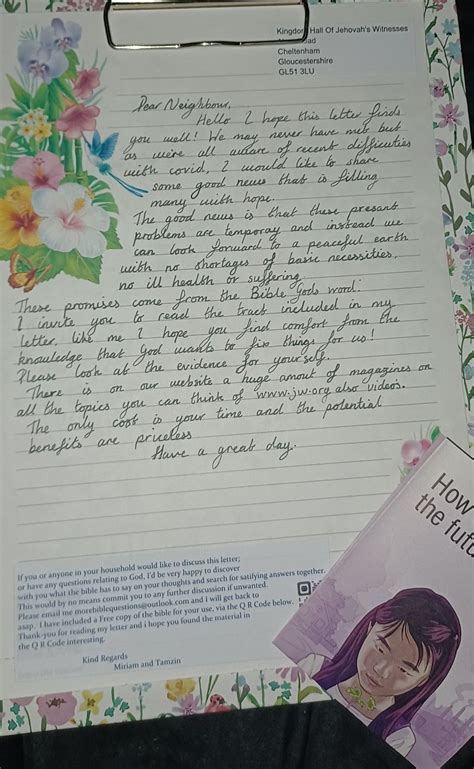 Kingdom Hall Of Jehovah's Witnesses
ad
Cheltenham
Gloucestershire
GL51 3LU
Dear Neighbour,
Hello I hope this letter finds
you well! We may never have met but
as we're all aware of recent difficulties
with covid, I would like to share
some good news that is filling
many with hope.
The good news is that these presant
problems are temporay and instead we
can look forward to a peaceful earth
with no shortages of basic necessities,
no ill health or suffering.
These promises come from the Bible, Gods word.
I invite you to read the tract included in my
letter, like me I hope you find comfort from the
knowledge that God wants to fix things for us!
Please look at the evidence for yourself.
There is on our website a huge amout of magazines on
all the topics you can think of www.jw.org also videos.
The only cost is your time and the potential
benefits are priceless
Have a great day.
If you or anyone in your household would like to discuss this letter;
or have any questions relating to God, I'd be very happy to discover
with you what the bible has to say on your thoughts and search for satifying answers together.
This would by no means commit you to any further discussion if unwanted.
Please email me morebiblequestions@outlook.com and I will get back to
asap. I have included a Free copy of the bible for your use, via the Q R Code below.
Thank-you for reading my letter and i hope you found the material in
the Q R Code interesting.
Kind Regards
Miriam and Tamzin
How
the futu